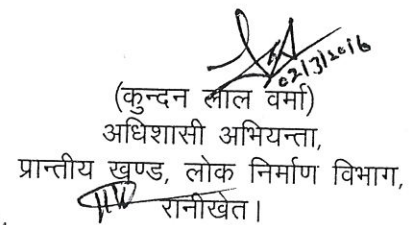 02/3/2016
(कुन्दन लाल वर्मा)
अधिशासी अभियन्ता,
प्रान्तीय खण्ड, लोक निर्माण विभाग,
रानीखेत।